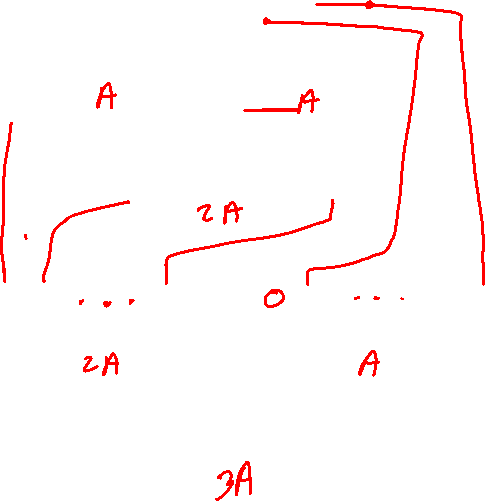 A A
2A
... O ...
2A A
3A